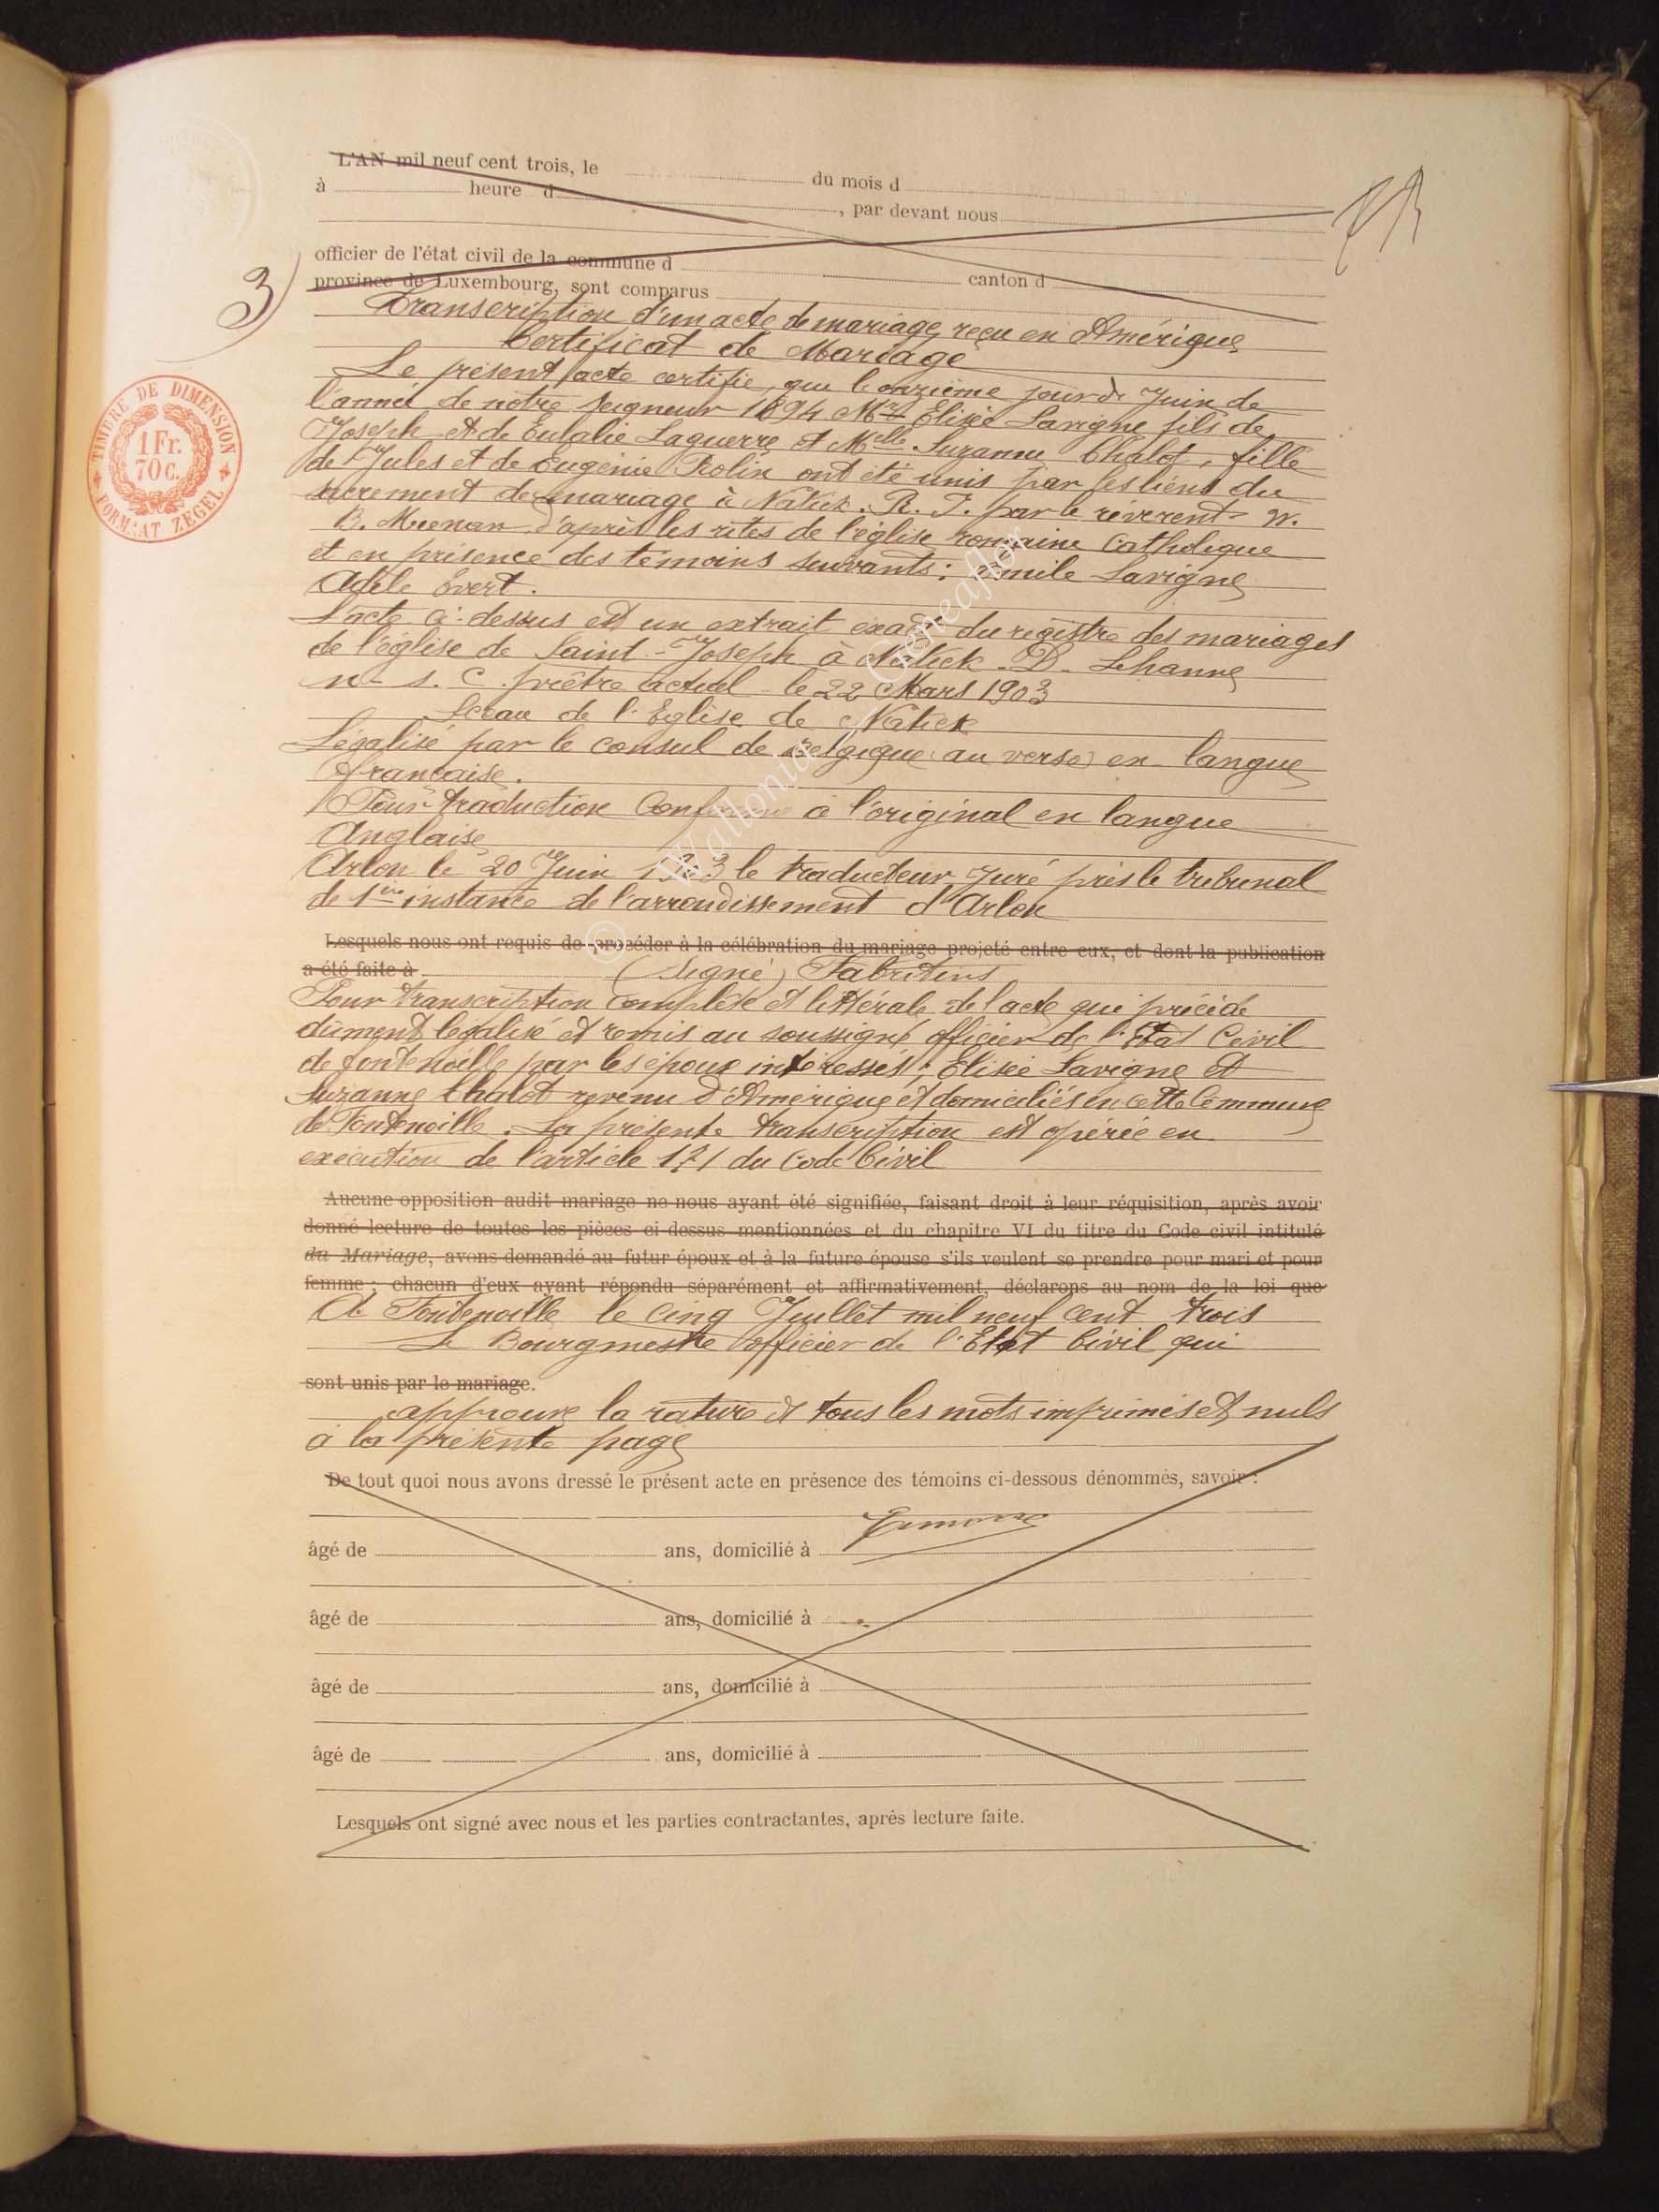 L'AN mil neuf cent trois, le du mois d
à heure d , par devant nous
officier de l'état civil de la commune d canton d
province de Luxembourg, sont comparus
3)
TIMBRE DE DIMENSION
1 Fr.
70 c.
FORMAAT ZEGEL
Transcription d'un acte de mariage reçu en Amérique
Certificat de Mariage
Le présent acte certifie, que le onzième jour de Juin de
l'année de notre Seigneur 1894 Mr Elisée Lavigne fils de
Joseph et de Eulalie Laguerre et Melle Suzanne Chalot, fille
de Jules et de Eugénie Rolin ont été unis par les liens du
sacrement de mariage à Natick. R. I. par le reverent W.
B. Meenan d'après les rites de l'église romaine Catholique
et en présence des témoins suivants: Emile Lavigne
Adèle Evert.
L'acte ci-dessus est un extrait exact du registre des mariages
de l'église de Saint-Joseph à Natick. D. Lehanne
n. s. C. prêtre actuel le 22 Mars 1903
Sceau de l'Eglise de Natick
Légalisé par le consul de Belgique (au verso) en langue
française.
Pour traduction Conforme à l'original en langue
Anglaise
Arlon le 20 Juin 1903 le traducteur Juré près le tribunal
de 1ère instance de l'arrondissement d'Arlon
Lesquels nous ont requis de procéder à la célébration du mariage projeté entre eux, et dont la publication
a été faite à (Signé) Fabritius
Pour transcription complète et littérale de l'acte qui précède
dûment légalisé et remis au soussigné officier de l'Etat Civil
de fontenoille par les époux intéressés: Elisée Lavigne et
Suzanne Chalot revenu d'Amérique et domiciliés en cette Commune
de Fontenoille. La présente transcription est opérée en
exécution de l'article 171 du Code Civil
Aucune opposition audit mariage ne nous ayant été signifiée, faisant droit à leur réquisition, après avoir
donné lecture de toutes les pièces ci-dessus mentionnées et du chapitre VI du titre du Code civil intitulé
du Mariage, avons demandé au futur époux et à la future épouse s'ils veulent se prendre pour mari et pour
femme ; chacun d'eux ayant répondu séparément et affirmativement, déclarons au nom de la loi que
A Fontenoille le cinq Juillet mil neuf cent trois
Le Bourgmestre officier de l'Etat Civil qui
sont unis par le mariage.
approuve la rature de tous les mots imprimés et nuls
à la présente page
De tout quoi nous avons dressé le présent acte en présence des témoins ci-dessous dénommés, savoir :
âgé de ans, domicilié à
âgé de ans, domicilié à
âgé de ans, domicilié à
âgé de ans, domicilié à
Lesquels ont signé avec nous et les parties contractantes, après lecture faite.
© Wallonia - Geneaflon